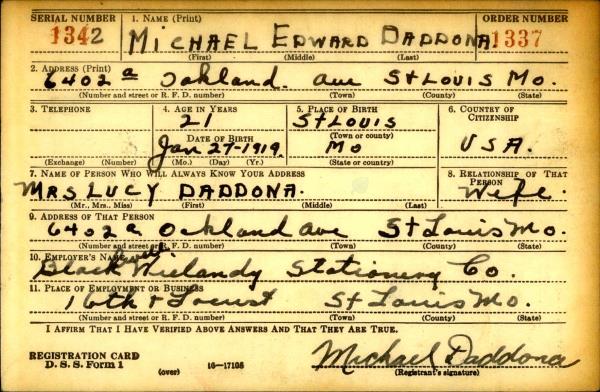 SERIAL NUMBER 1. NAME (Print) ORDER NUMBER
1342 MICHAEL EDWARD DADDONA 1337
(First) (Middle) (Last)
2. ADDRESS (Print)
6402a Oakland. ave St LOUIS Mo.
(Number and street or R. F. D. number) (Town) (County) (State)
3. TELEPHONE 4. AGE IN YEARS 5. PLACE OF BIRTH 6. COUNTRY OF CITIZENSHIP
21 St LOUIS
DATE OF BIRTH (Town or county)
Jan 27-1919. Mo USA.
(Exchange) (Number) (Mo.) (Day) (Yr.) (State or country)
7. NAME OF PERSON WHO WILL ALWAYS KNOW YOUR ADDRESS 8. RELATIONSHIP OF THAT PERSON
MRS LUCY DADDONA. Wife.
(Mr., Mrs., Miss) (First) (Middle) (Last)
9. ADDRESS OF THAT PERSON
6402a Oakland ave St Louis Mo.
(Number and street or R. F. D. number) (Town) (County) (State)
10. EMPLOYER'S NAME
Blackwell Wielandy Stationery Co.
11. PLACE OF EMPLOYMENT OR BUSINESS
16th + Locust St Louis Mo.
(Number and street or R. F. D. number) (Town) (County) (State)
I AFFIRM THAT I HAVE VERIFIED ABOVE ANSWERS AND THAT THEY ARE TRUE.
REGISTRATION CARD
D. S. S. Form 1 (over) 16—17105
Michael Daddona
(Registrant's signature)